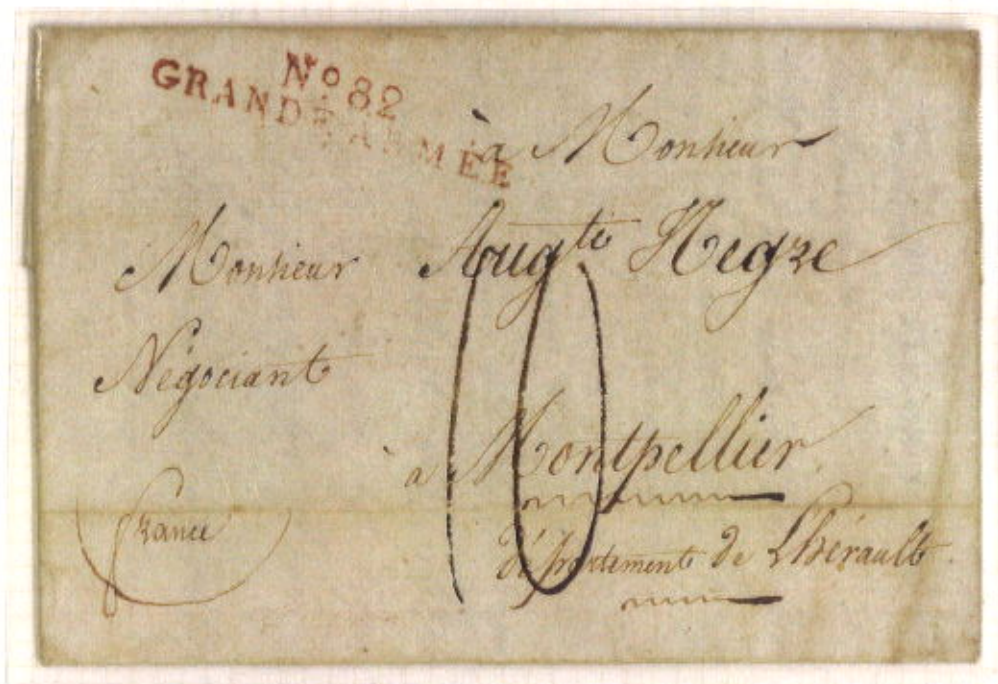 No 82
GRANDE ARMÉE
à Monsieur
Monsieur Augte Negre
Négociant
à Montpellier
département de Lhérault
france
10